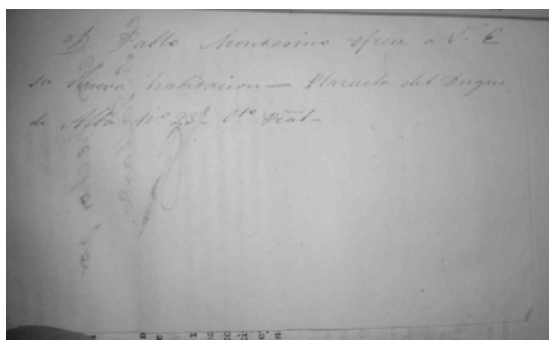 D. Pablo Montesino ofrece a V. E
su nueva habitacion — Plazuela del Duque
de Alba Nº 23 Pral